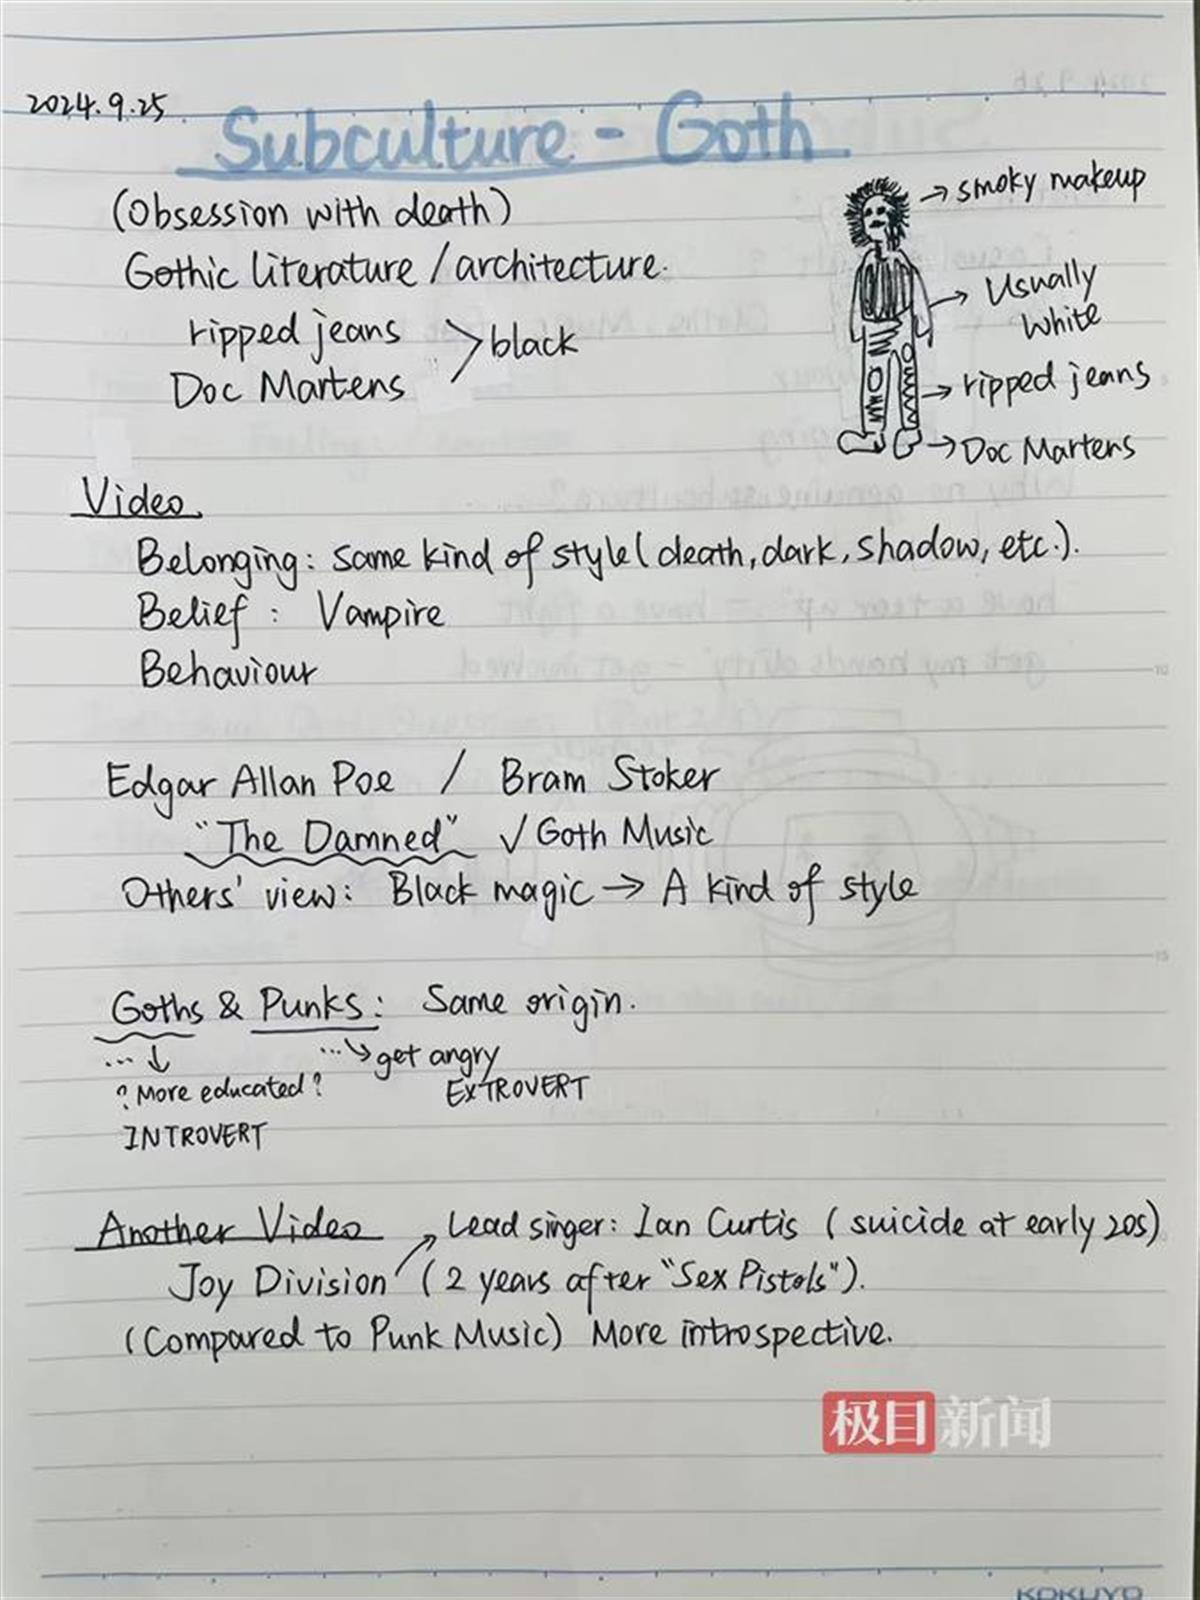 2024.9.25
Subculture - Goth
(Obsession with death)
Gothic literature / architecture.
ripped jeans
Doc Martens
> black
→ smoky makeup
→ Usually
white
→ ripped jeans
→ Doc Martens
Video
Belonging: same kind of style (death, dark, shadow, etc.).
Belief: Vampire
Behaviour
Edgar Allan Poe / Bram Stoker
"The Damned" √ Goth Music
Others' view: Black magic → A kind of style
Goths & Punks: Same origin.
... ↓ ... ↘ get angry
? More educated? EXTROVERT
INTROVERT
Another Video ↗ Lead singer: Ian Curtis (suicide at early 20s)
Joy Division (2 years after "Sex Pistols").
(Compared to Punk Music) More introspective.
极目新闻
KOKUYO